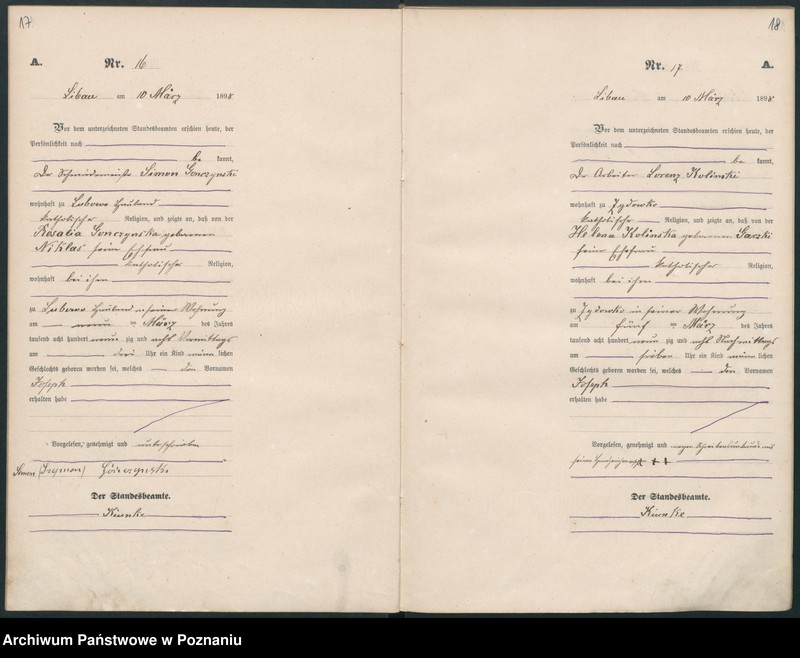 17
A.
Nr. 16
Libau am 10 März 1898
Vor dem unterzeichneten Standesbeamten erschien heute, der
Persönlichkeit nach
be kannt,
Der Schmiedemeister Simon Gonczynski
wohnhaft zu Lubowo Hauland
katholischer Religion, und zeigte an, daß von der
Rosalia Gonczynska geborenen
Niklas seiner Ehefrau
katholischer Religion,
wohnhaft bei ihm
zu Lubowo Hauland in seiner Wohnung
am neun ten März des Jahres
tausend acht hundert neun zig und acht Vormittags
um drei Uhr ein Kind männlichen
Geschlechts geboren worden sei, welches den Vornamen
Joseph
erhalten habe
Vorgelesen, genehmigt und unterschrieben
Simon (Szymon)
Der Standesbeamte.
18
A.
Nr. 17
Libau am 10 März 1898
Vor dem unterzeichneten Standesbeamten erschien heute, der
Persönlichkeit nach
be kannt,
Der Arbeiter Lorenz Kolinski
wohnhaft zu Zydowko
katholischer Religion, und zeigte an, daß von der
Helena Kolinska geborenen Garzki
seiner Ehefrau
katholischer Religion,
wohnhaft bei ihm
zu Zydowko in seiner Wohnung
am fünf ten März des Jahres
tausend acht hundert neun zig und acht Nachmittags
um sieben Uhr ein Kind männlichen
Geschlechts geboren worden sei, welches den Vornamen
Joseph
erhalten habe
Vorgelesen, genehmigt und wegen Schreibensunkunde mit
seinem Handzeichen +++
Der Standesbeamte.
Archiwum Państwowe w Poznaniu